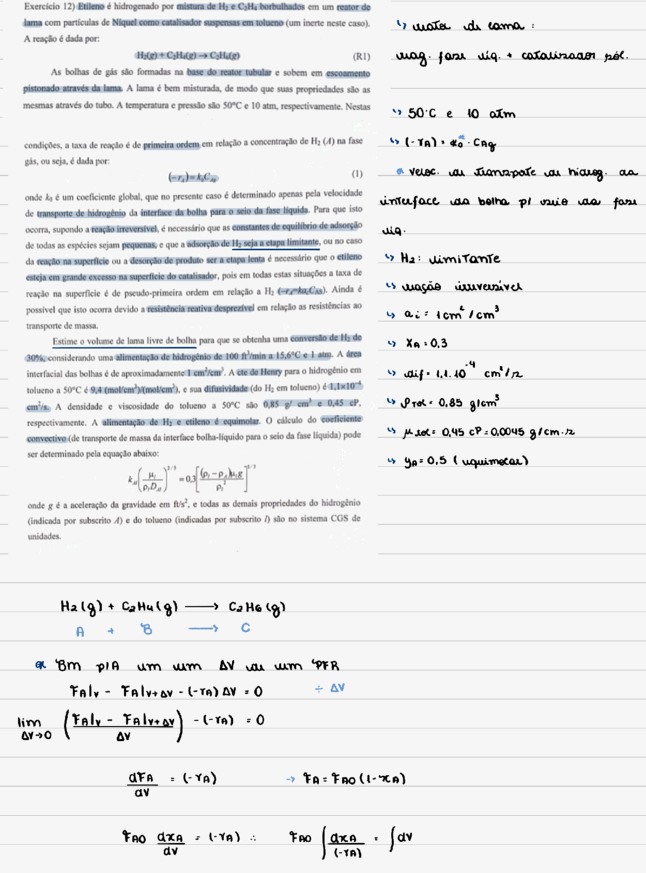 Exercício 12) Etileno é hidrogenado por mistura de H₂ e C₂H₄ borbulhados em um reator de
lama com partículas de Níquel como catalisador suspensas em tolueno (um inerte neste caso).
A reação é dada por:
H₂(g) + C₂H₄(g) → C₂H₆(g) (R1)
As bolhas de gás são formadas na base do reator tubular e sobem em escoamento
pistonado através da lama. A lama é bem misturada, de modo que suas propriedades são as
mesmas através do tubo. A temperatura e pressão são 50°C e 10 atm, respectivamente. Nestas
condições, a taxa de reação é de primeira ordem em relação a concentração de H₂ (A) na fase
gás, ou seja, é dada por:
(1)
onde k₀ é um coeficiente global, que no presente caso é determinado apenas pela velocidade
de transporte de hidrogênio da interface da bolha para o seio da fase líquida. Para que isto
ocorra, supondo a reação irreversível, é necessário que as constantes de equilíbrio de adsorção
de todas as espécies sejam pequenas, e que a adsorção de H₂ seja a etapa limitante, ou no caso
da reação na superfície ou a desorção de produto ser a etapa lenta é necessário que o etileno
esteja em grande excesso na superfície do catalisador, pois em todas estas situações a taxa de
reação na superfície é de pseudo-primeira ordem em relação a H₂ Ainda é
possível que isto ocorra devido a resistência reativa desprezível em relação as resistências ao
transporte de massa.
Estime o volume de lama livre de bolha para que se obtenha uma conversão de H₂ de
30%, considerando uma alimentação de hidrogênio de 100 ft³/min a 15,6°C e 1 atm. A área
interfacial das bolhas é de aproximadamente 1 cm²/cm³. A cte de Henry para o hidrogênio em
tolueno a 50°C é 9,4 (mol/cm³)/(mol/cm³), e sua difusividade (do H₂ em tolueno) é 1,1×10⁻⁴
cm²/s. A densidade e viscosidade do tolueno a 50°C são 0,85 g/ cm³ e 0,45 cP,
respectivamente. A alimentação de H₂ e etileno é equimolar. O cálculo do coeficiente
convectivo (de transporte de massa da interface bolha-líquido para o seio da fase líquida) pode
ser determinado pela equação abaixo:
onde g é a aceleração da gravidade em ft/s², e todas as demais propriedades do hidrogênio
(indicada por subscrito A) e do tolueno (indicadas por subscrito l) são no sistema CGS de
unidades.
↳ reator de lama :
reag. fase líq. + catalisador sól.
↳ 50°C e 10 atm
↳ (-rA) = k₀ᵅ · CAg
α veloc. de transporte de hidrog. da
interface da bolha p/ seio da fase
líq.
↳ H₂: limitante
↳ reação irreversível
↳ ai = 1 cm²/cm³
↳ XA = 0,3
↳ dif = 1,1.10⁻⁴ cm²/s
↳ ρtol = 0,85 g/cm³
↳ μtol = 0,45 cP = 0,0045 g/cm.s
↳ yA = 0,5 (equimolar)
H₂(g) + C₂H₄(g) ⟶ C₂H₆(g)
A + B ⟶ C
Bm p/A em um ΔV de um PFR
FA|v - FA|v+ΔV - (-rA) ΔV = 0 ÷ ΔV
lim ΔV→0 ((FA|v - FA|v+ΔV)/ΔV) - (-rA) = 0
dFA/dV = (-rA) → FA = FA0 (1-xA)
FA0 dxA/dV = (-rA) ∴ FA0 ∫ dxA/(-rA) = ∫dV